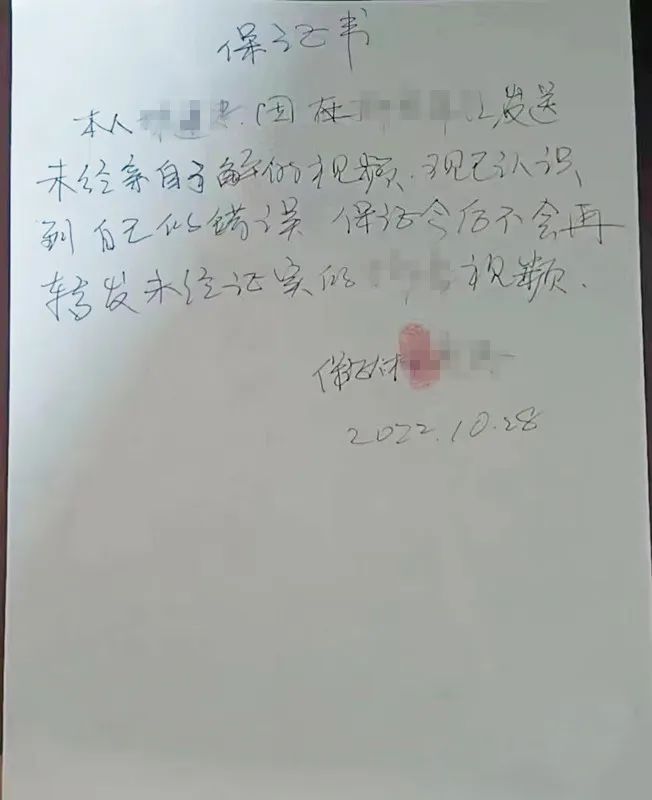 保证书
本人 因在 上发送
未经亲自了解的视频.现已认识
到自己的错误 保证今后不会再
转发未经证实的 视频.
保证人
2022.10.28